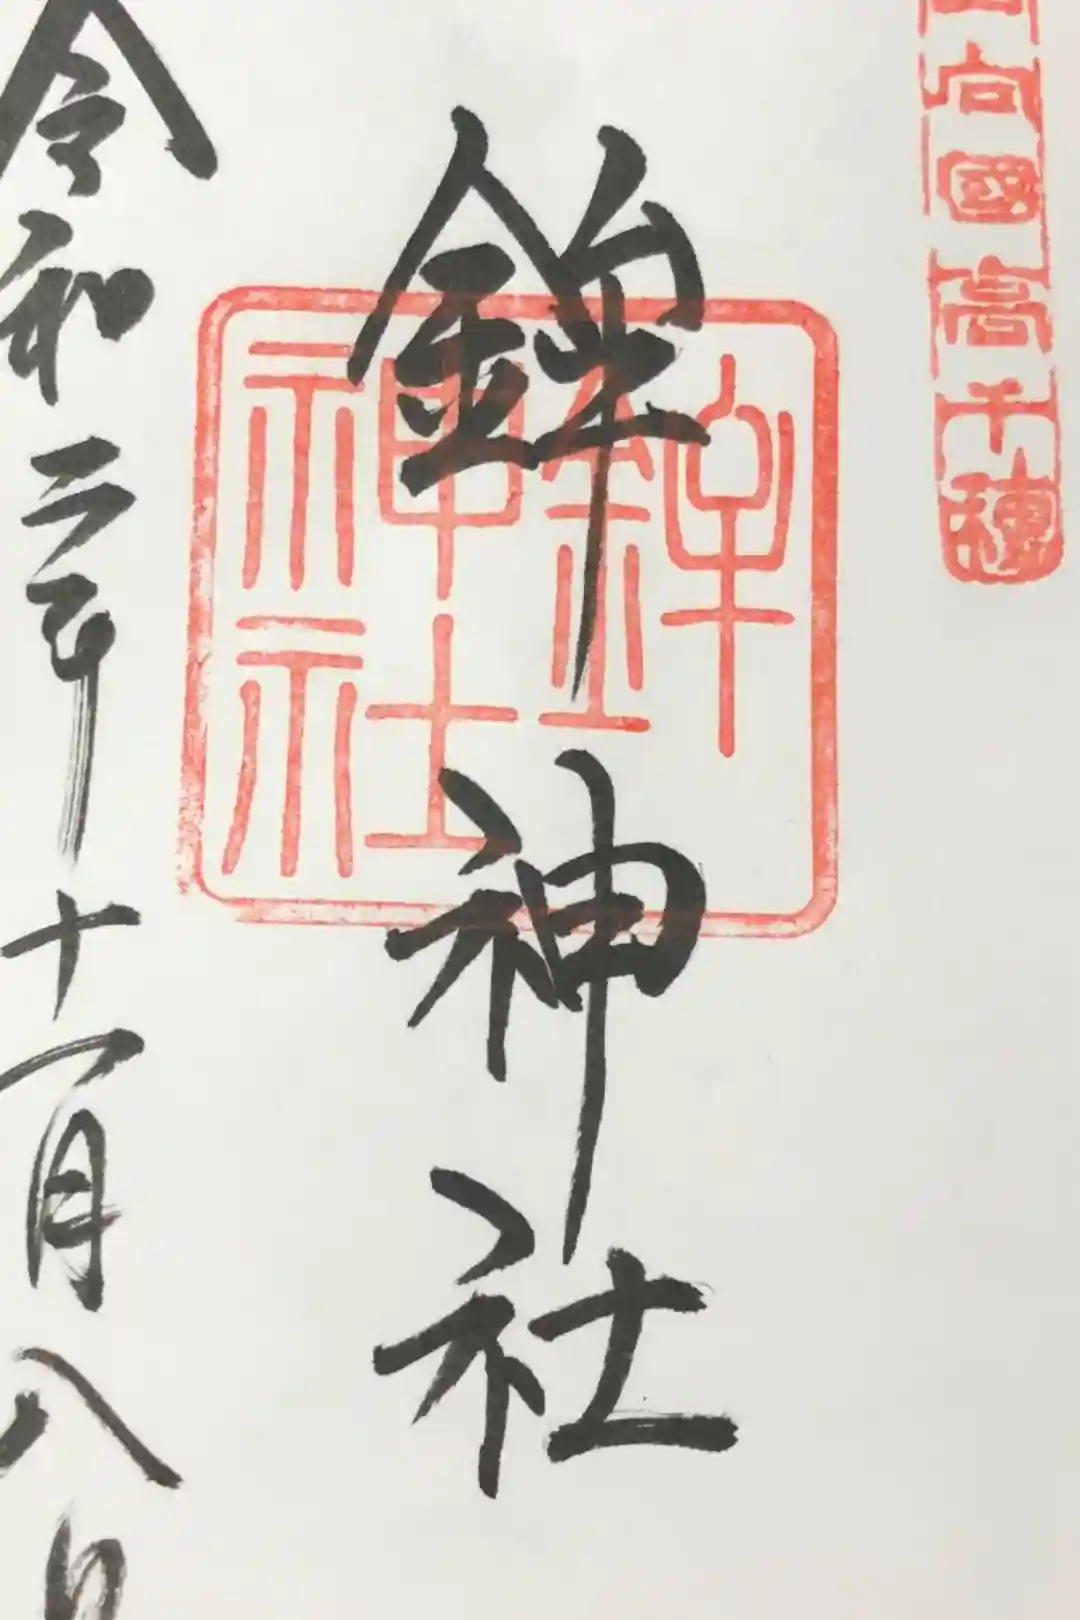 向國高千穂
鉾神社
鉾神社
令和二年十一月八日